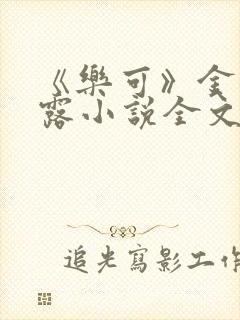 《樂可》金
露小說全文
追光寫影工作